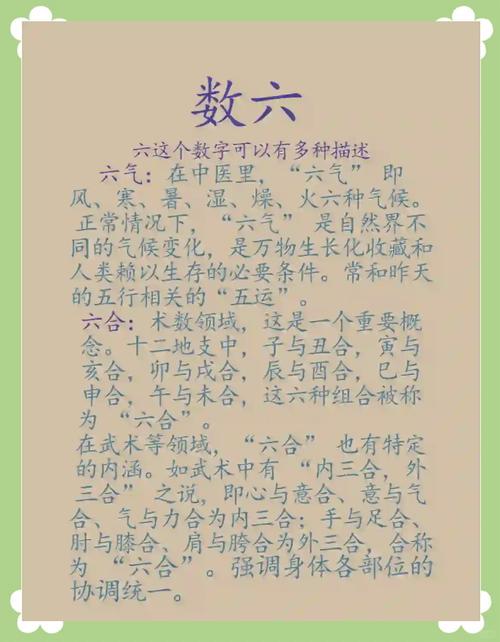 数六
六这个数字可以有多种描述
六气：在中医里，“六气” 即
风、寒、暑、湿、燥、火六种气候。
正常情况下，“六气” 是自然界不
同的气候变化，是万物生长化收藏和
人类赖以生存的必要条件。常和昨天
的五行相关的“五运”。
六合：术数领域，这是一个重要概
念。十二地支中，子与丑合，寅与
亥合，卯与戌合，辰与酉合，巳与
申合，午与未合，这六种组合被称
为 “六合”。
在武术等领域，“六合” 也有特定
的内涵。如武术中有 “内三合，外
三合” 之说，即心与意合、意与气
合、气与力合为内三合；手与足合、
肘与膝合、肩与胯合为外三合，合称
为 “六合”。强调身体各部位的
协调统一。